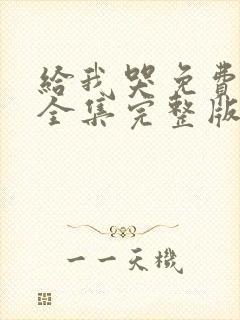 給我哭免費
全集完整版
一一天機